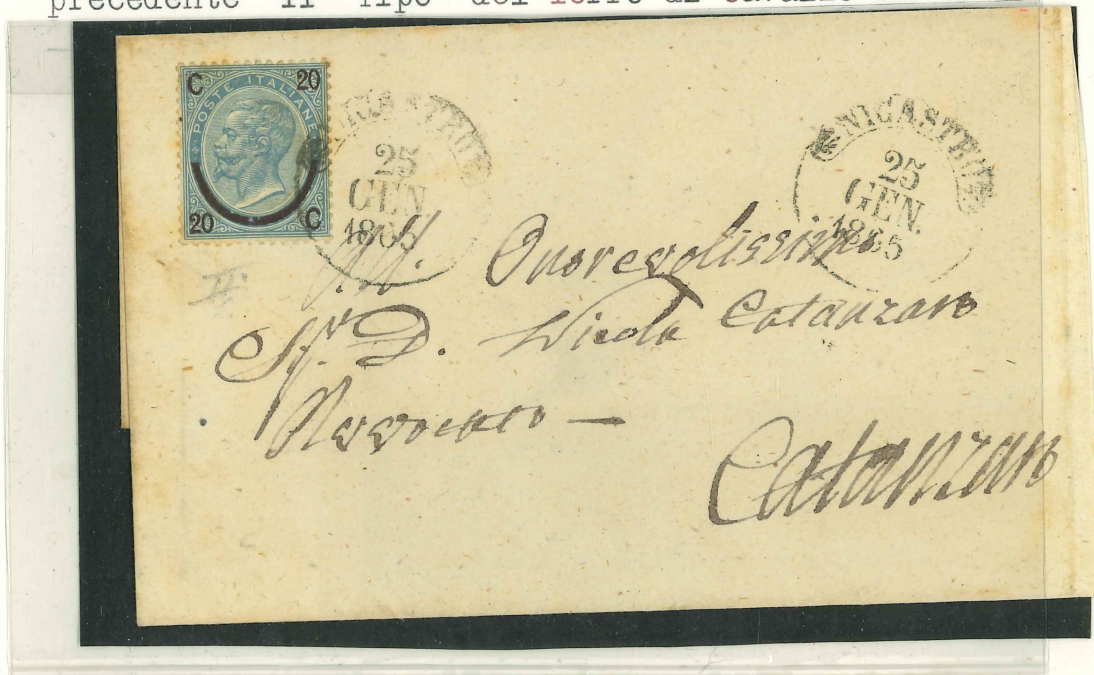 precedente II Tipo del ferro di cavallo
C 20
POSTE ITALIANE
20 C
NICASTRO
25
GEN
1865
NICASTRO
25
GEN.
1865
II
All' Onorevolissimo
Sig.r D. Nicola Catanzaro
Avvocato —
Catanzaro